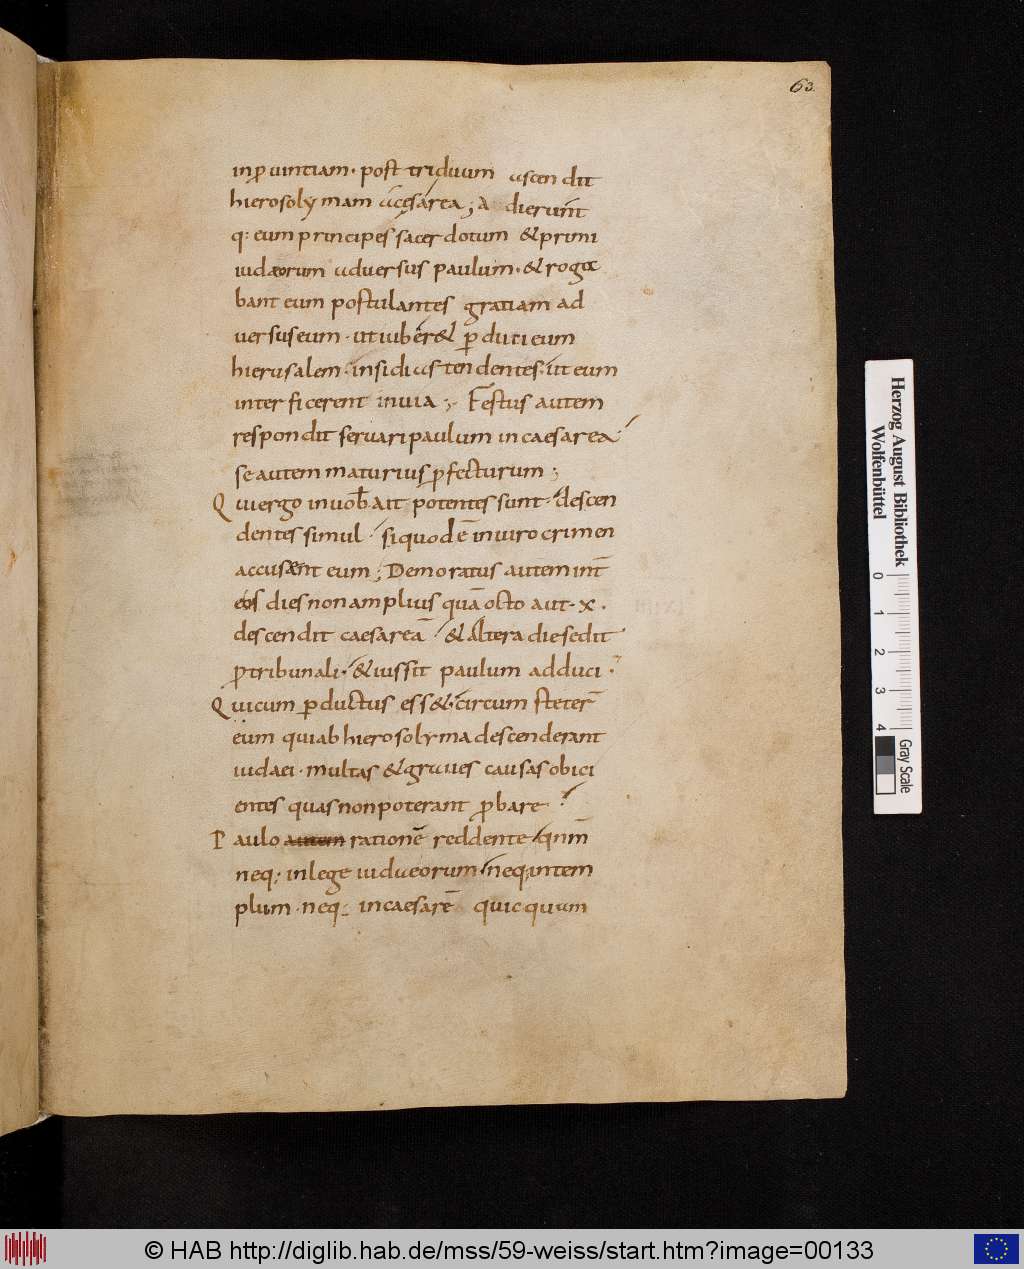 63.
inꝓuintiam· post triduum ascendit
hierosolymam acęsarea; Adierunt
q: eum principes sacerdotum & primi
iudæorum aduersus paulum· & roga
bant eum postulantes gratiam ad
uersus eum· ut iuber& ꝑduci eum
hierusalem· insidias tendentes· ut eum
interficerent inuia;· Festus autem
respondit seruari paulum in caesarea
se autem maturius ꝓfecturum;
Qui ergo inuob̄ ait potentes sunt· descen
dentes simul· si quod ē inuiro crimen
accusent eum; Demoratus autem int̄
eos dies non amplius quā octo aut· x·
descendit caesareā· & altera die sedit
ꝓ tribunali· & iussit paulum adduci·
Qui cum ꝑductus ess&· circum steter̄
eum quiab hierosolyma descenderant
iudaei· multas & graues causas obici
entes quas non poterant ꝓbare
Paulo autem rationē reddente· qnm̄
neq; inlege iudaeorum· neq; intem
plum· neq; in caesarē quicquam
Herzog August Bibliothek
Wolfenbüttel
0 1 2 3 4
Gray Scale
© HAB http://diglib.hab.de/mss/59-weiss/start.htm?image=00133